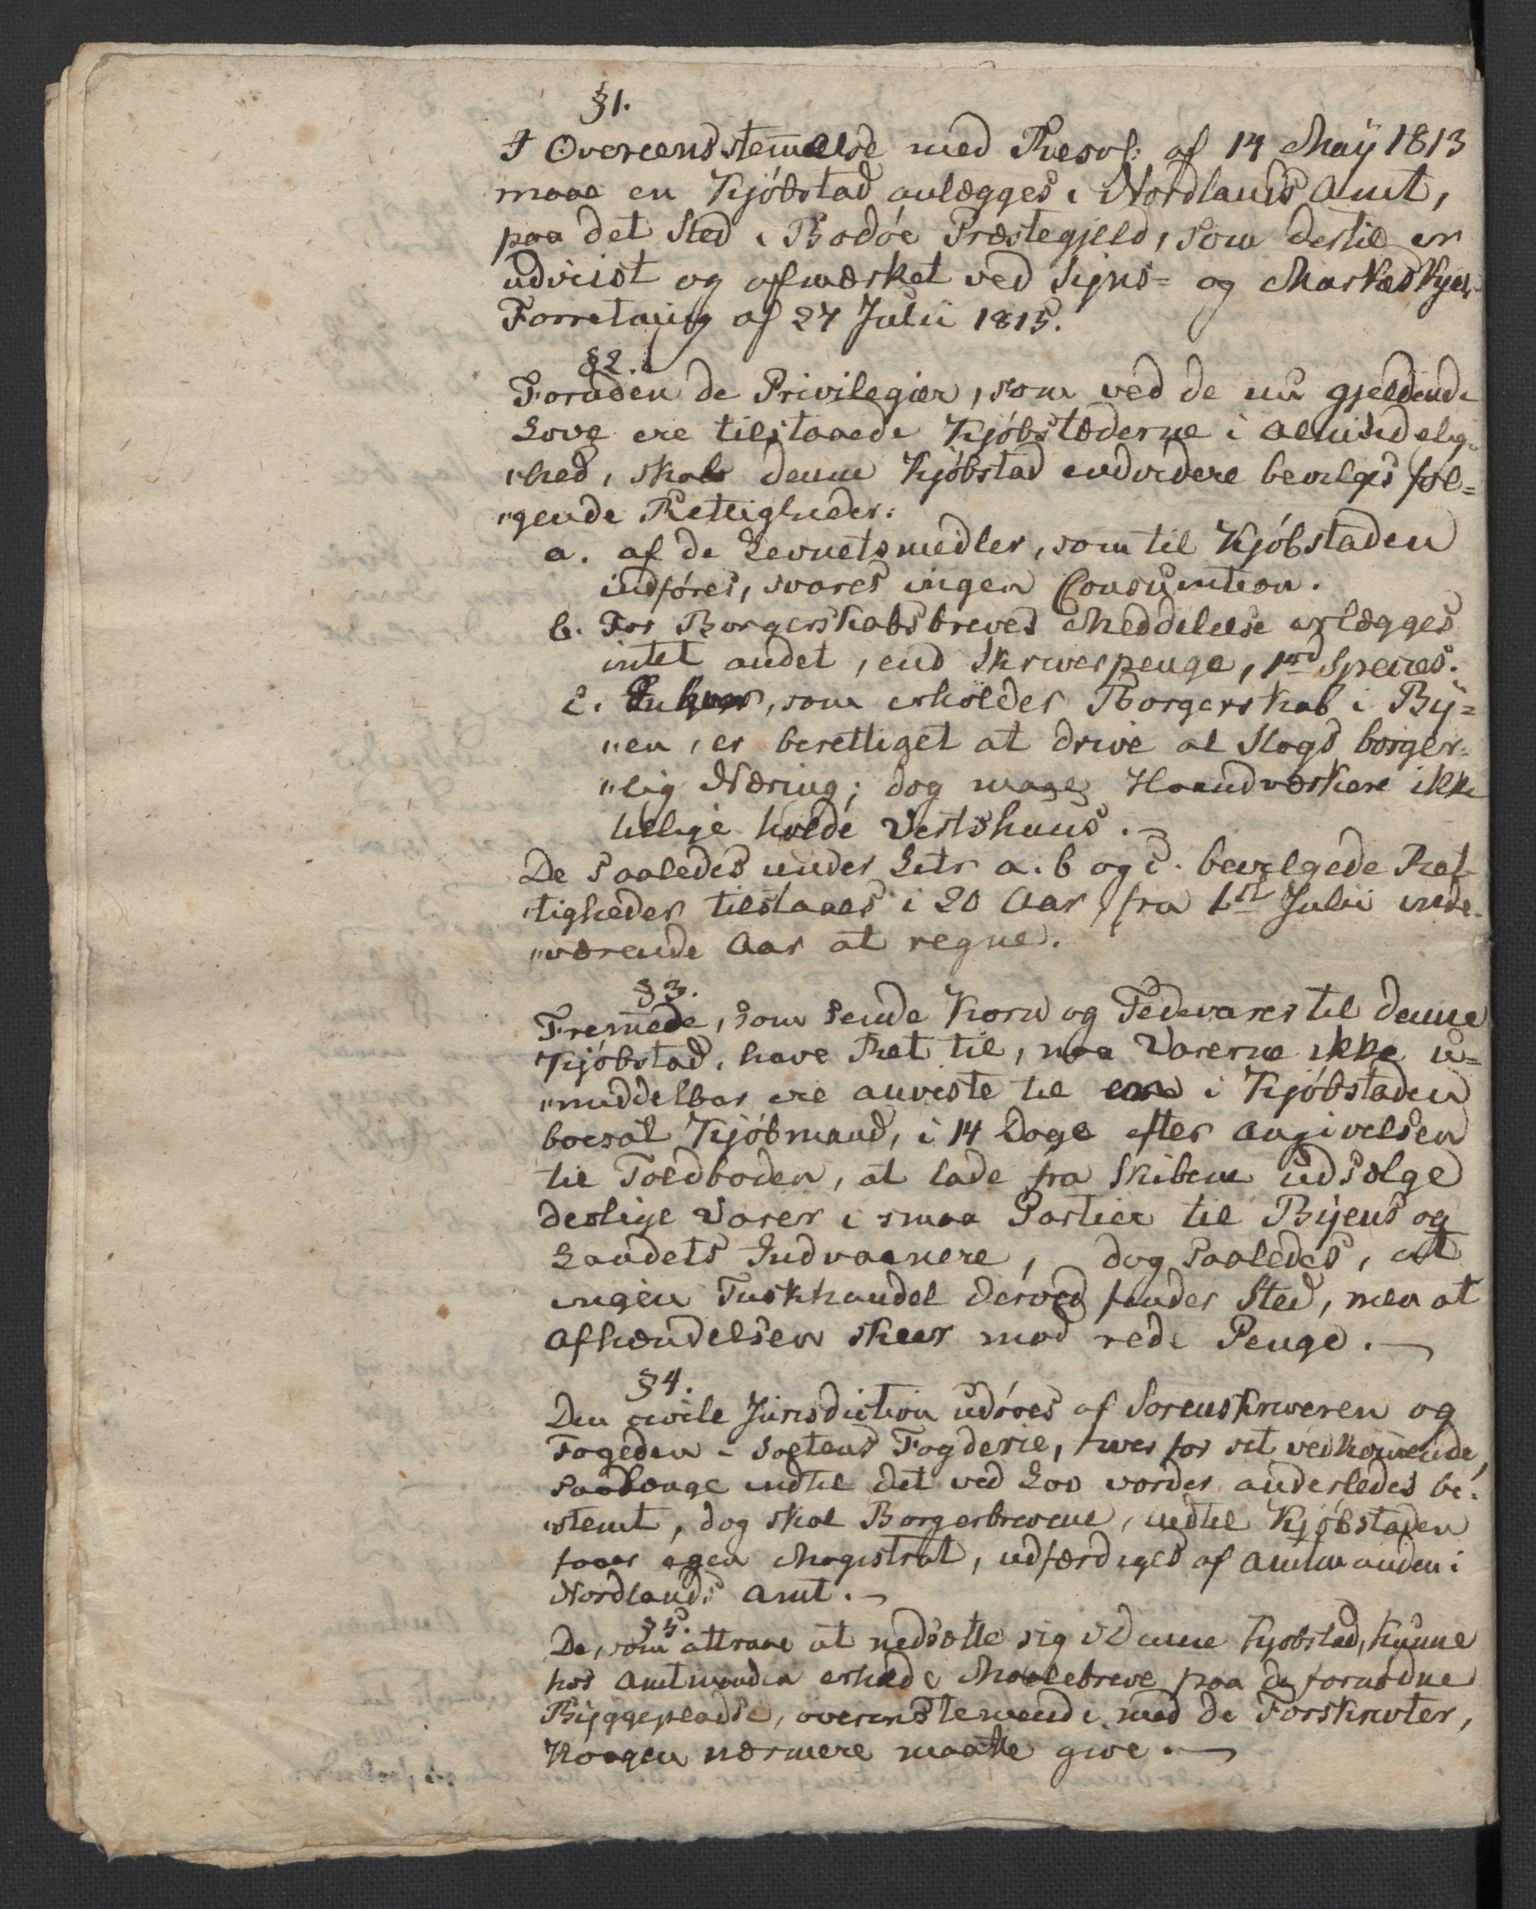 §1.
I Overeensstem̄else med Resol: af 14 Maÿ 1813
maae en Kjøbstad anlægges i Nordlands Amt,
paa det Sted i Bodøe Præstegjeld, som dertil er
udviist og afmærket ved Sijns= og Markeskjels-
Forretning af 27 Julii 1815.
§2.
Foruden de Privilegier, som ved de nu gjeldende
Love ere tilstaaede Kjøbstæderne i Almindelig-
„hed, skal denne Kjøbstad endvidere bevilges føl=
„gende Rettigheder:
a. af de Levnetsmidler, som til Kjøbstaden
indføres, svares ingen Consumtion.
b. For Borgerskabsbreves Meddelelse erlægges
intet andet, end Skriverpenge, 1 rd Species.
c. Enhver, som erholder Borgerskab i Bÿ=
„en, er berettiget at drive al Slags borger-
„lig Næring; dog maae Haandværkere ikke
tillige holde Vertshuus. –
De saaledes under Litr a. b og c. bevilgede Ret-
tigheder tilstaaes i 20 Aar fra 1ste Julii inde-
„værende Aar at regne.
§3.
Frem̄ede, som sende Korn og Fedevarer til denne
Kjøbstad, have Ret til, naar Varerne ikke u=
„middelbar ere anviste til en i Kjøbstaden
boesat Kjøbmand, i 14 Dage efter Angivelsen
til Toldboden, at lade fra Skibene udsælge
deslige Varer i smaa Partier til Bÿens og
Landets Indvaanere, dog saaledes, at
ingen Tuskhandel derved finder Sted, men at
Afhændelsen skeer mod rede Penge. –
§4.
Den civile Jurisdiction udøves af Sorenskriveren og
Fogeden i Saltens Fogderie, hver for sit vedkom̄ende,
saalænge indtil det ved Lov vorder anderledes be-
„stemt, dog skal Borgerbrevene, indtil Kjøbstaden
faaer egen Magistrat, udfærdiges af Amtmanden i
Nordlands Amt. –
§5.
De, som attraae at nedsætte sig i denne Kjøbstad, kunne
hos Amtmanden erholde Maalebreve paa de fornødne
Bÿggepladse, overensstemmende med de Forskrivter,
Kongen nærmere maatte give. –